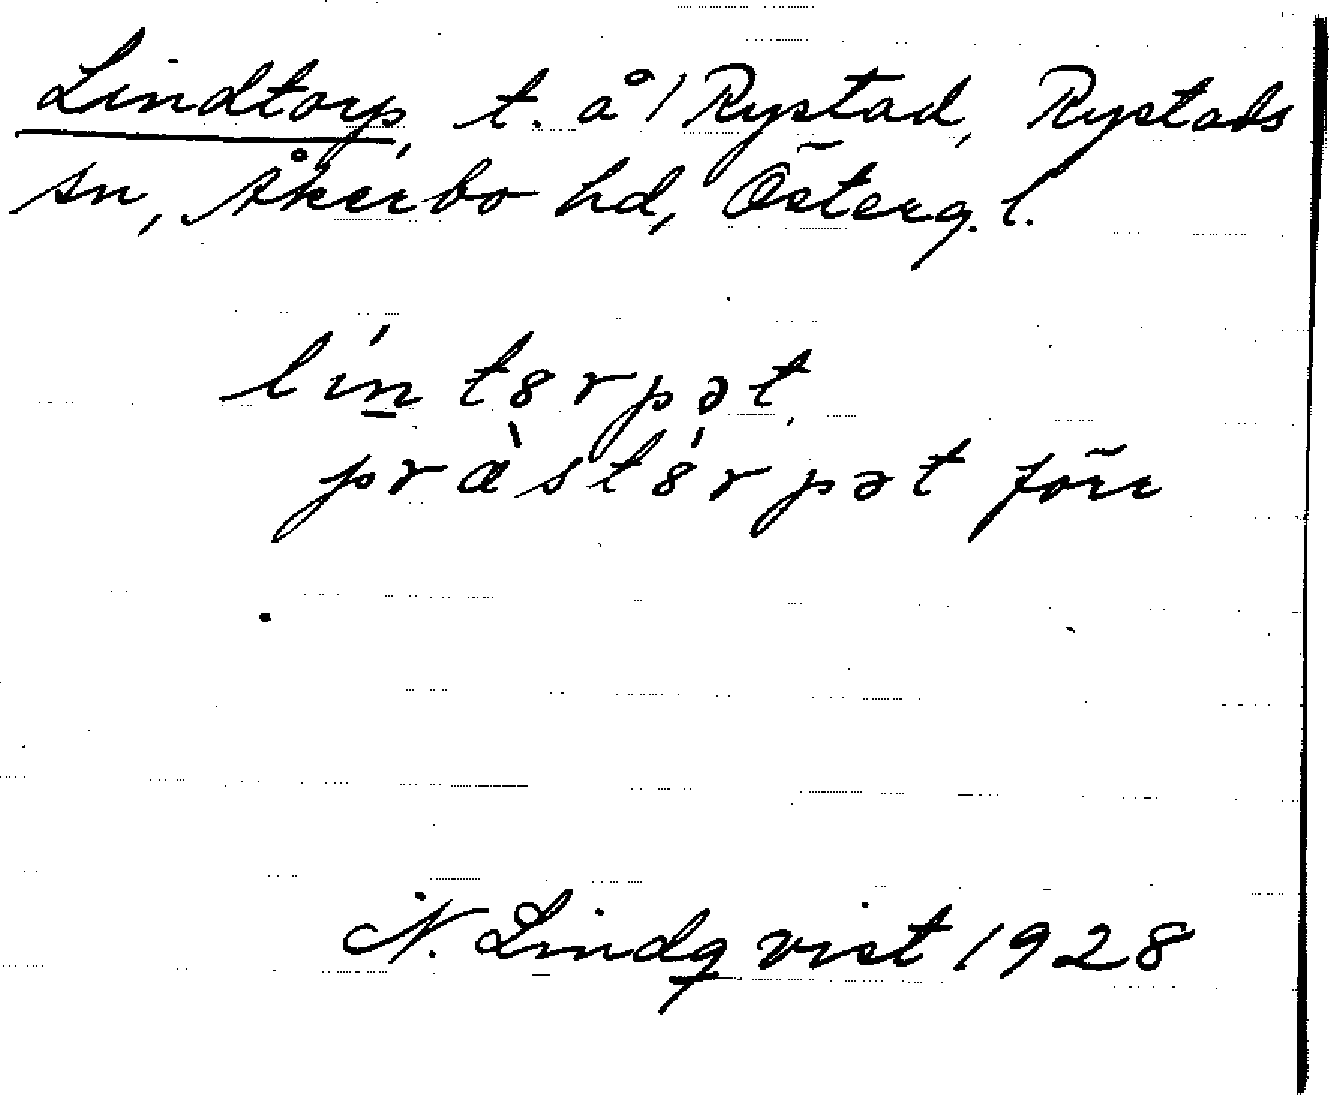 Lindtorp, t. å 1 Rystad, Rystads
sn, Åkerbo hd, Österg. l.
lin̲t8rpət,
præ̀st8́rpət förr
N. Lindqvist 1928